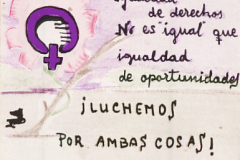 igualdad
de derechos
No es "igual" que
igualdad
de oportunidades
¡LUCHEMOS
POR AMBAS COSAS!